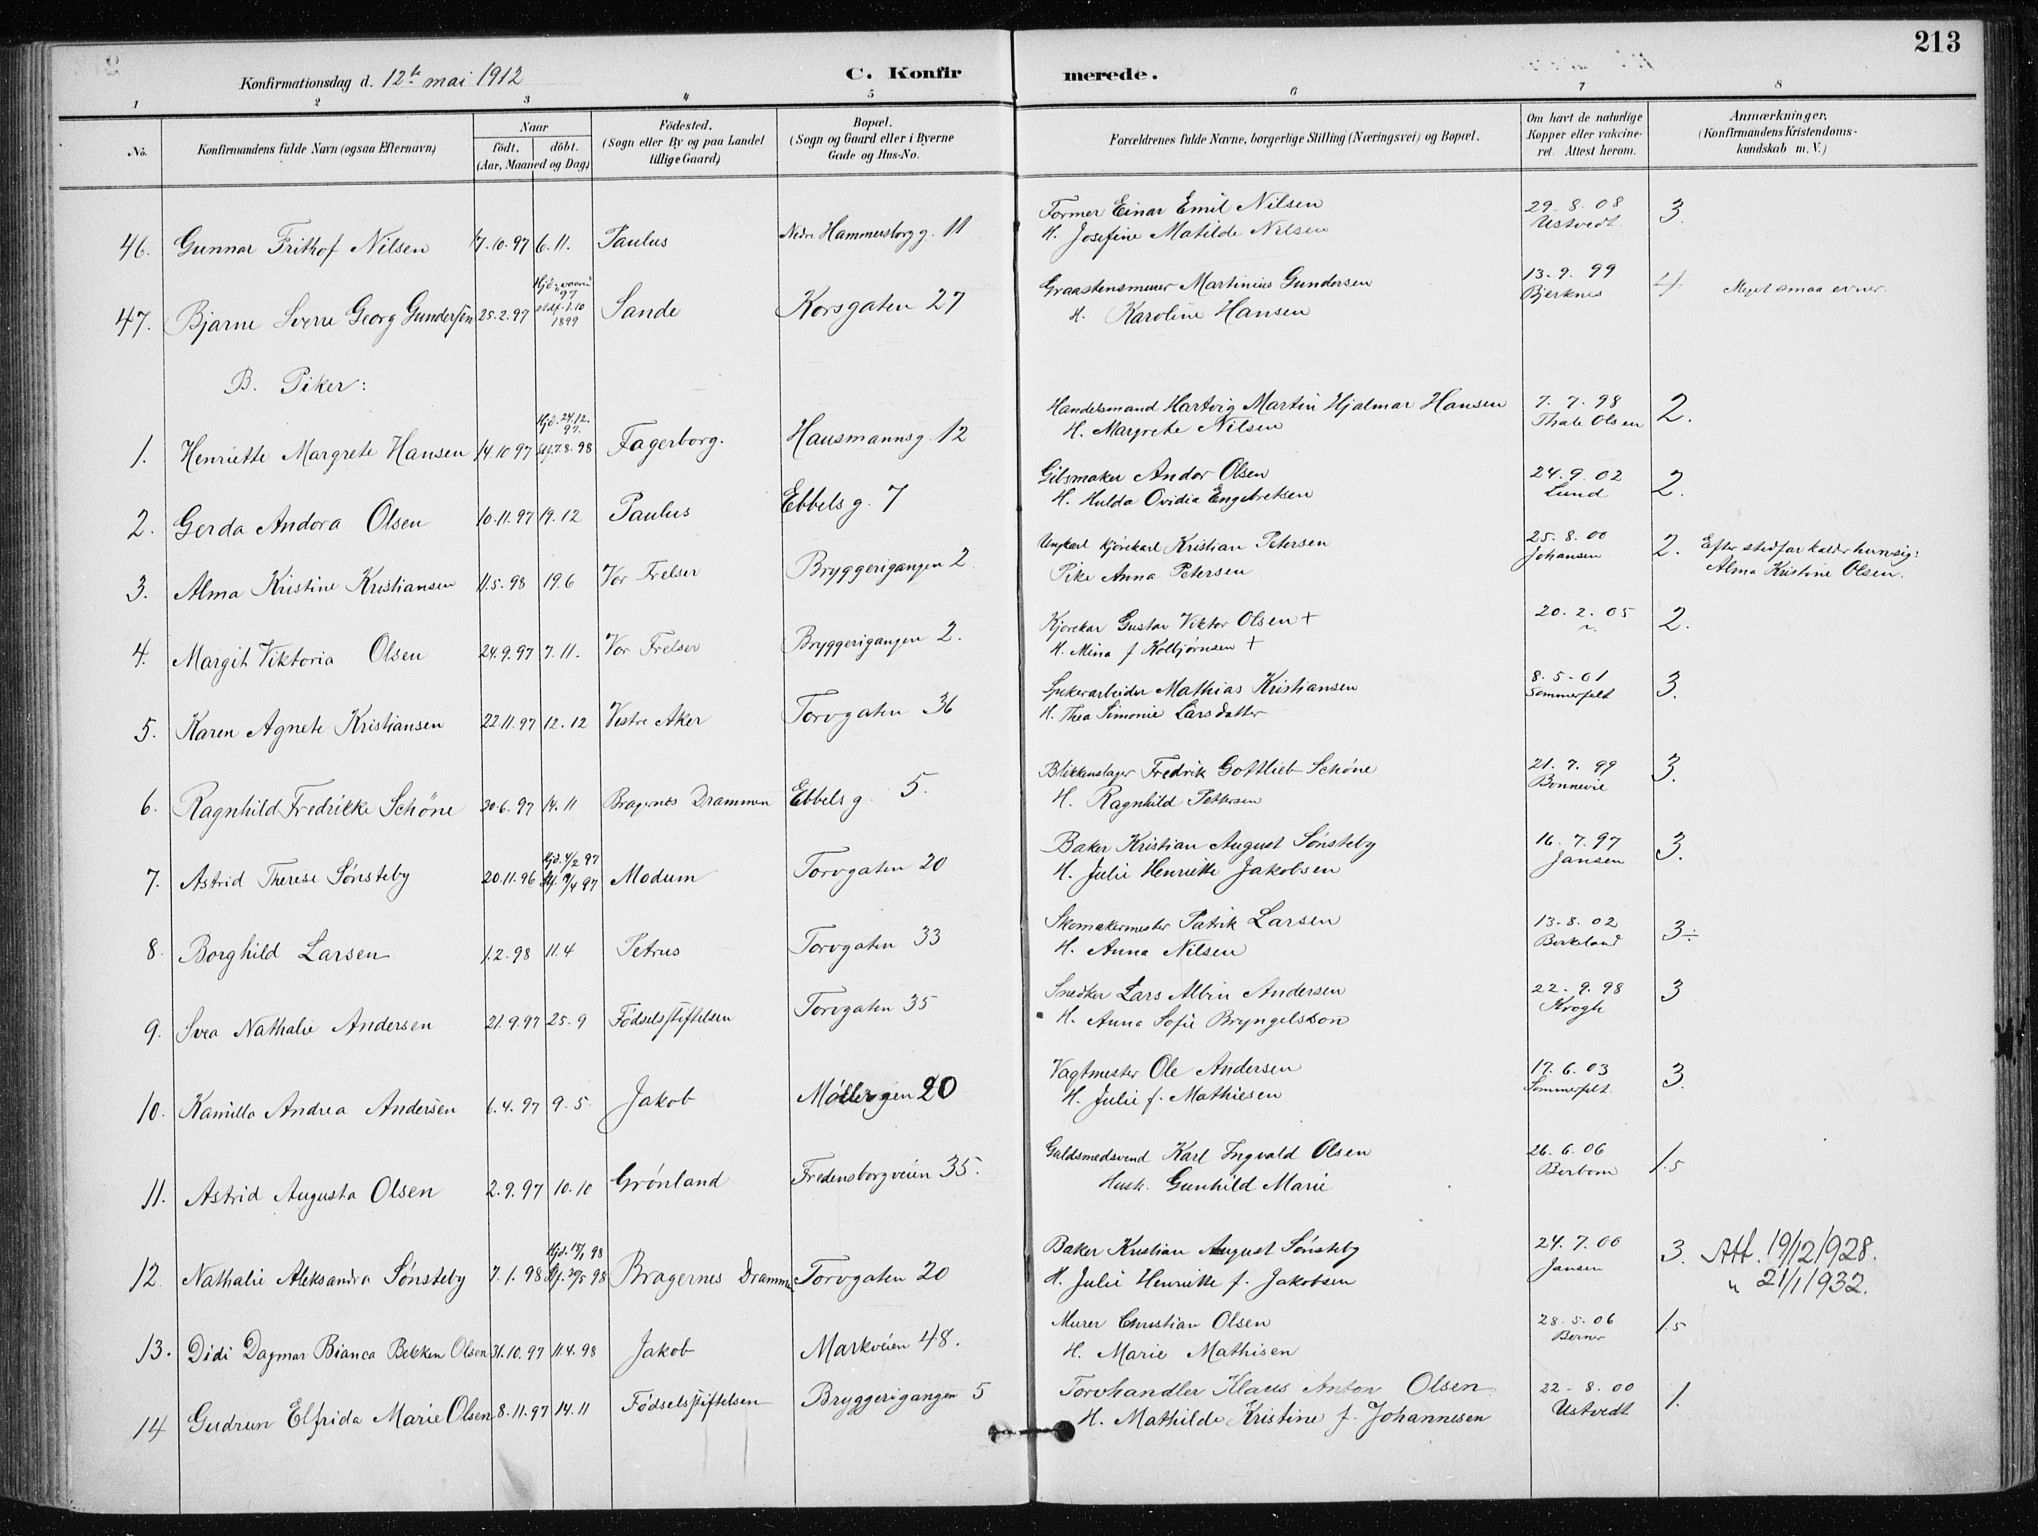 213
Konfirmationsdag d. 12te mai 1912
C. Konfirmerede.
1 2 3 4 5 6 7 8
No. Konfirmandens fulde Navn (ogsaa Efternavn) Naar Født. døbt. (Aar, Maaned og Dag) Fødested. (Sogn eller By og paa Landet tillige Gaard) Bopæl. (Sogn og Gaard eller i Byerne Gade og Hus-No. Forældrenes fulde Navne, borgerlige Stilling (Næringsvei) og Bopæl. Om havt de naturlige Kopper eller vakcineret. Attest herom. Anmærkninger, (Konfirmandens Kristendomskundskab m. V.)
46. Gunnar Frithof Nilsen 17.10.97 6.11. Paulus Nedre Hammersborgg. 11 Former Einar Emil Nilsen 29.8.08 3.
H. Josefine Matilde Nilsen Ustvedt.
47. Bjarne Sverre Georg Gundersen 25.2.97 Hjd. 97 stdf. 1.10 1899 Sande Korsgaten 27 Graastensmurer Martinius Gundersen 13.9.99 4. Meget smaa evner.
H. Karoline Hansen Bjerknes
B. Piker:
1. Henriette Margrete Hansen 14.10 97 Hjd. 24.12. 97. 7.8.98 Fagerborg. Hausmannsg. 12 Handelsmand Hartvig Martin Hjalmar Hansen 7.7.98 2.
H. Margrete Nilsen Thale Olsen
2. Gerda Andora Olsen 10.11.97 19.12 Paulus Ebbels g. 7 Gibsmaker Andor Olsen 24.9.02 2.
H. Hulda Ovidia Engebretsen Lund
3. Alma Kristine Kristiansen 11.5.98 19.6 Vor Frelser Bryggerigangen 2. Ungkarl kjørekarl Kristian Petersen 25.8.00 2. Efter stedfar kalder hun sig:
Pike Anna Petersen Johansen Alma Kristine Olsen.
4. Margit Viktoria Olsen 24.9.97 7.11. Vor Frelser Bryggerigangen 2. Kjørekar Gustav Viktor Olsen + 20.2.05 2.
H. Mina f Kolbjørnsen +
5. Karen Agnete Kristiansen 22.11.97 12.12 Vestre Aker Torvgaten 36 Spikerarbeider Mathias Kristiansen 8.5.01 3.
H. Thea Simonie Larsdatter Sommerfelt
6. Ragnhild Fredrikke Schöne 30.6.97 14.11 Bragernes Drammen Ebbels g. 5. Blikkenslager Fredrik Gottlieb Schöne 21.7.99 3.
H. Ragnhild Pettersen Bonnevie
7. Astrid Therese Sønsteby 20.11.96 Hjd. 4/2 97 4 97 Modum Torvgaten 20 Baker Kristian August Sønsteby 16.7.97 3.
H. Julie Henriette Jakobsen Jansen
8. Borghild Larsen 1.2.98 11.4 Petrus Torvgaten 33 Skomakermester Patrik Larsen 13.8.02 3÷
H. Anna Nilsen Birkeland
9. Svea Nathalie Andersen 21.9.97 25.9 Födselsstiftelsen Torvgaten 35 Snedker Lars Albin Andersen 22.9.98 3
H. Anna Sofie Bryngelsson Krogh
10. Kamilla Andrea Andersen 6.4.97 9.5. Jakob Møllergen 20 Vagtmester Ole Andersen 17.6.03 3.
H. Julie f. Mathiesen Sommerfelt
11. Astrid Augusta Olsen 2.9.97 10.10 Grønland Fredensborgveien 35. Guldsmedsvend Karl Ingvald Olsen 26.6.06 1.5
Hustr. Gunhild Marie
12. Nathalie Aleksandra Sønsteby 7.1.98 Hjd. 98 5 98 Bragernes Drammen Torvgaten 20 Baker Kristian August Sønsteby 24.7.00 3. Att. 19/12/928.
H. Julie Henriette f. Jakobsen Jansen " 21/1/1932.
13. Didi Dagmar Bianca Bekken Olsen 31.10.97 11.4.98 Jakob Markveien 48. Murer Christian Olsen 28.5.06 1.5
H. Marie Mathisen Berner
14 Gudrun Elfrida Marie Olsen 8.11.97 14.11 Fødselsstiftelsen Bryggerigangen 5 Torvhandler Klaus Anton Olsen 22.8.00 1.
H. Mathilde Kristine f. Johannesen Ustvedt